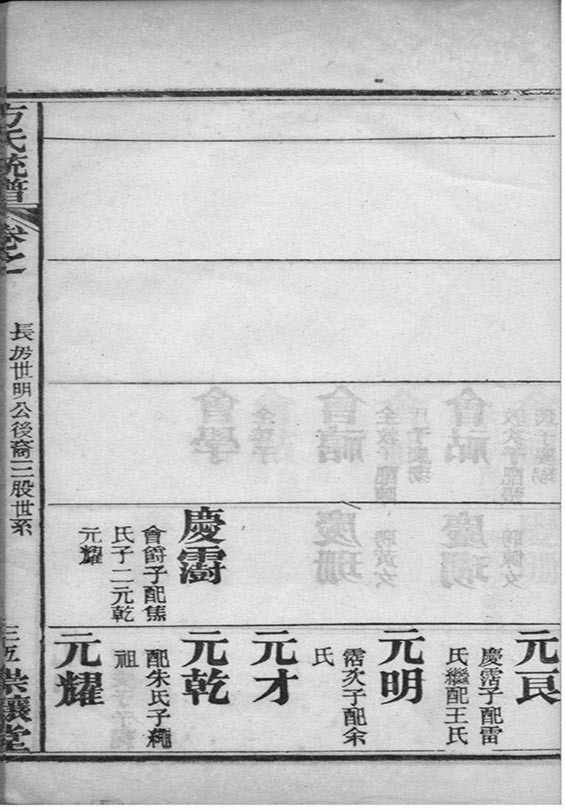 慶霌
會爵子配焦
氏子二元乾
元耀
元良
慶霑子配雷
氏繼配王氏
元明
霑次子配余
氏
元才
元乾
配朱氏子繩
祖
元耀
方氏統譜
卷之
長房世明公後裔三股世系
三五
堂